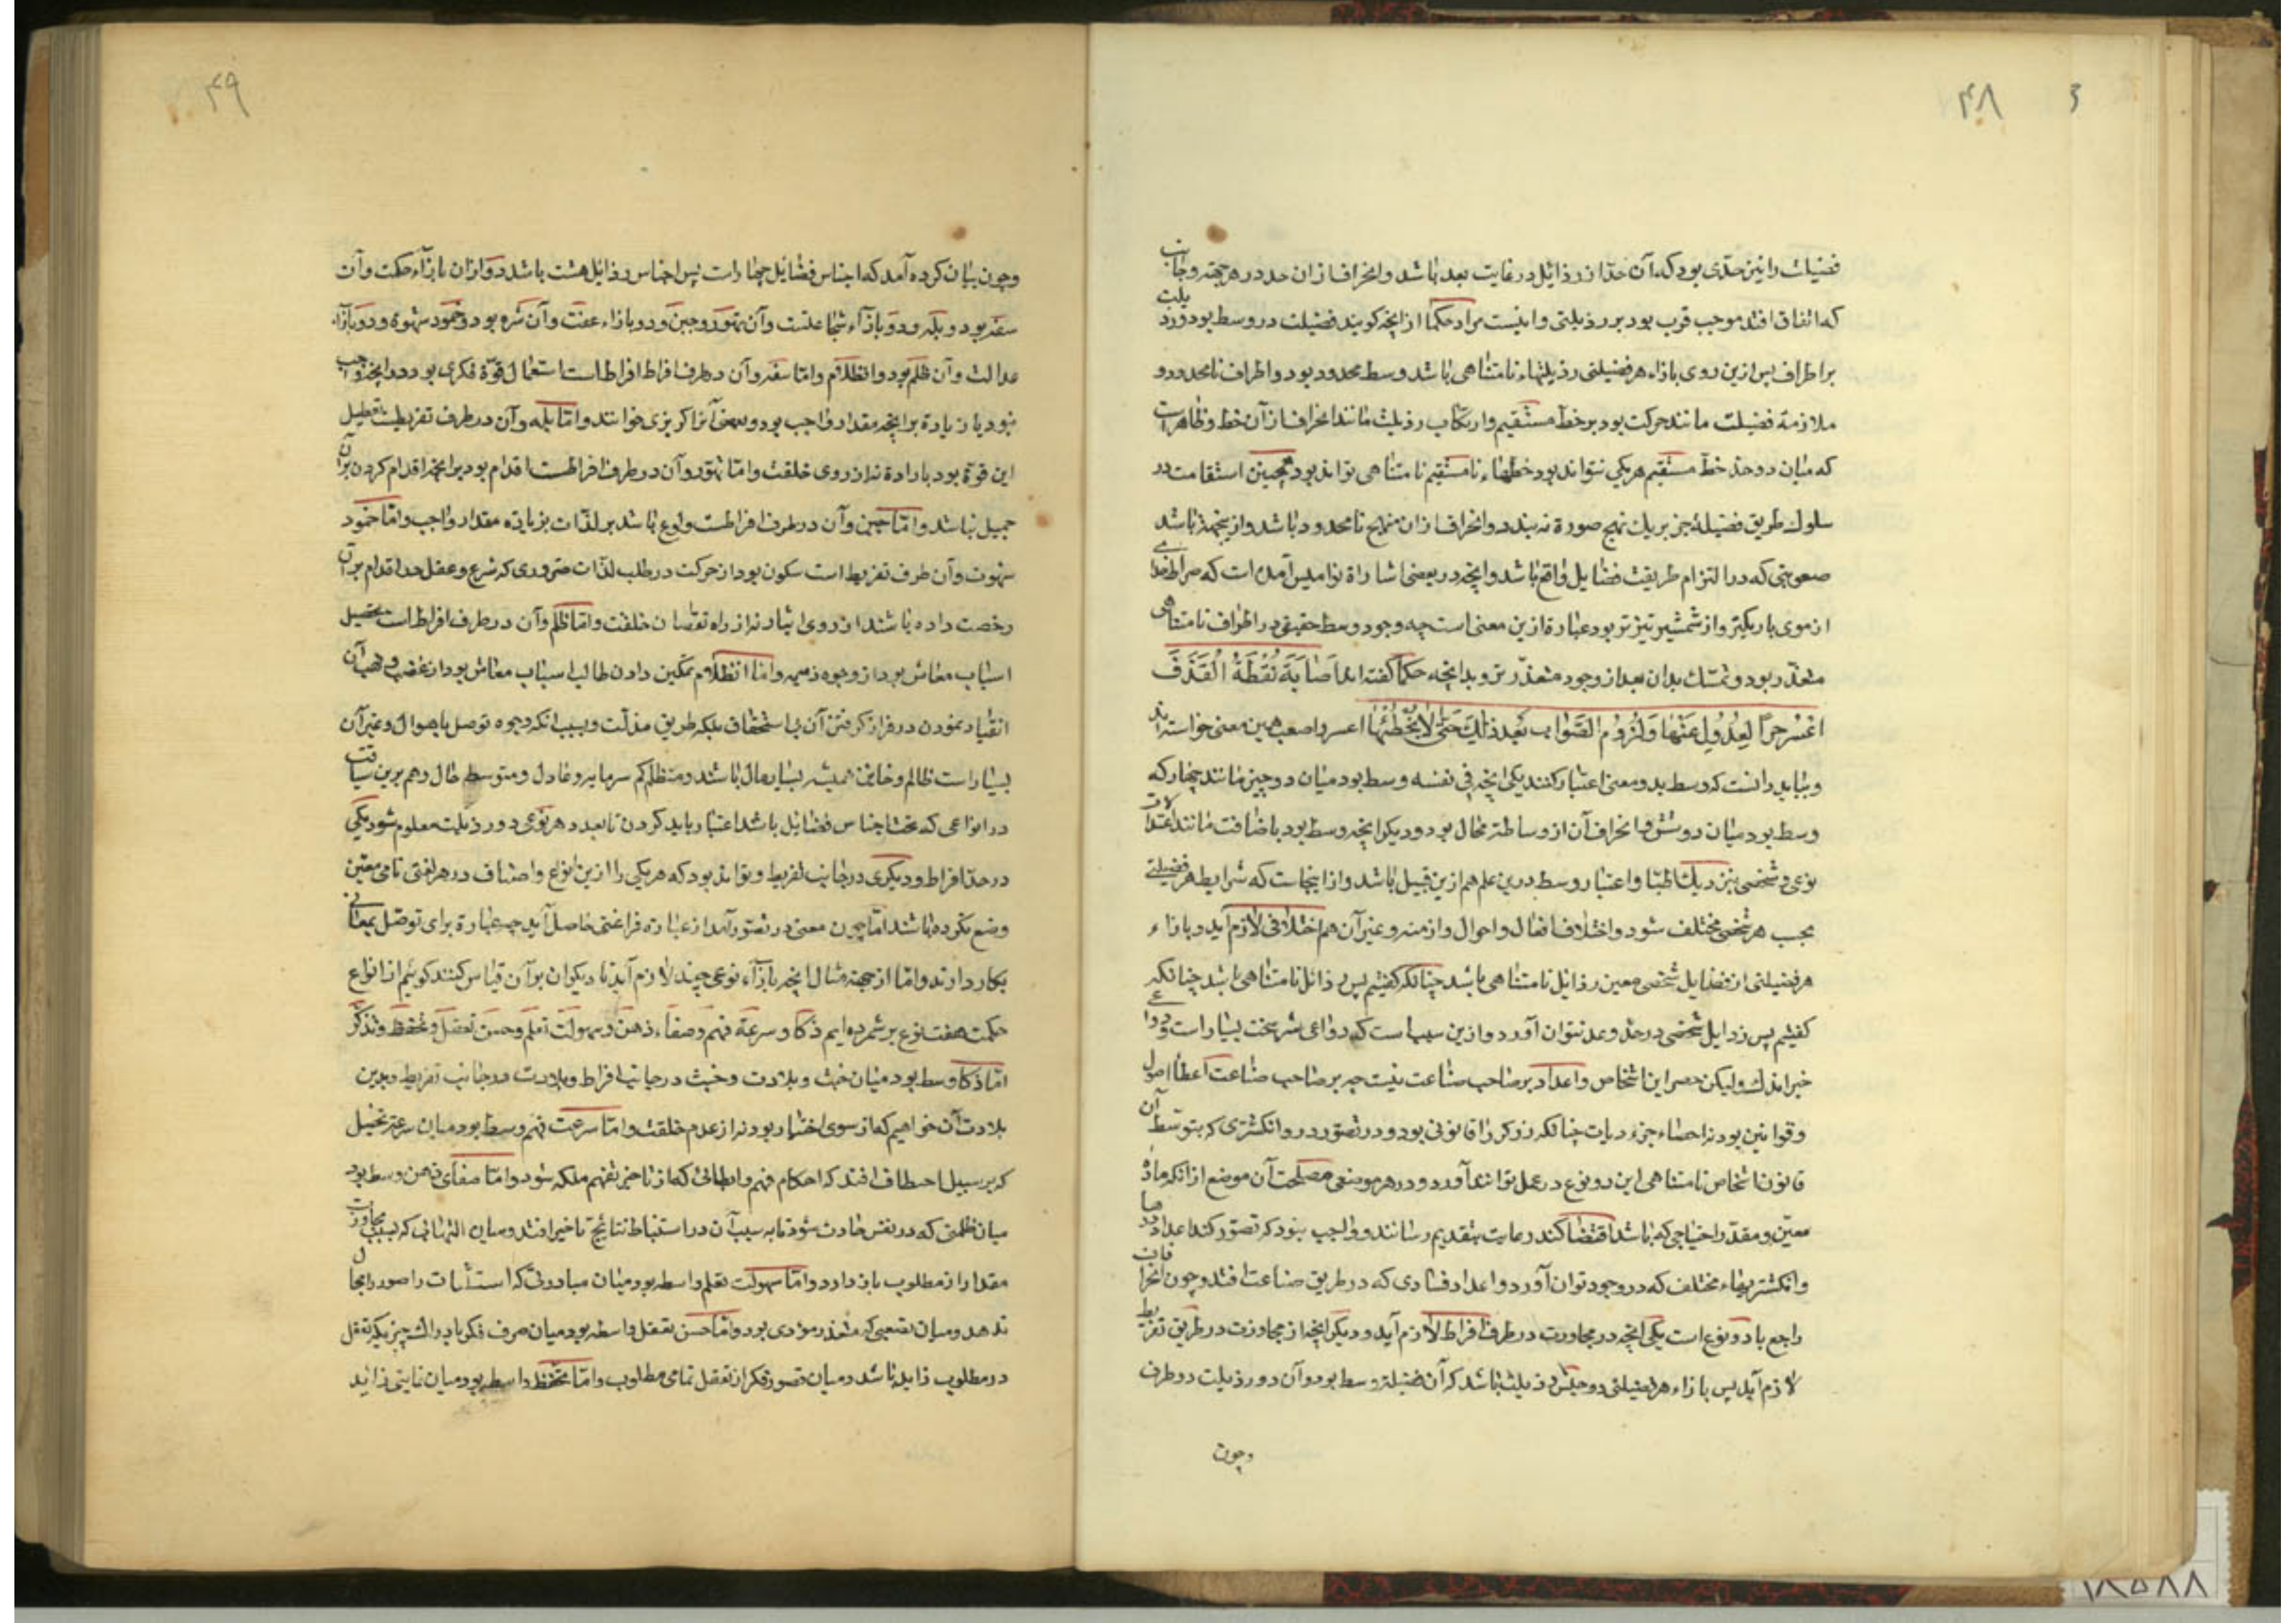 ۴۸
۳
فضیلت را نیز حدّی بود که آن حدّ از رذائل در غایت بعد باشد و انحراف از ان حد در هر جهة و جانب
که اتفاق افتد موجب قرب بود بر رذیلتی و اینست مراد حکما از انچه کویند فضیلت در وسط بود و رذیلت
بر اطراف پس ازین روی بازاء هر فضیلتی رذیلتهاء نامتناهی باشد وسط محدود بود و اطراف نامحدود و
ملازمة فضیلت مانند حرکت بود بر خط مستقیم و ارتکاب رذیلت مانند انحراف از آن خط و ظاهر است
که میان دو حد خطّ مستقیم هر یکی نتواند بود خطهاء نامستقیم نامتناهی تواند بود همچنین استقامت در
سلوک طریق فضیلة جز بر یک نهج صورة نه بندد و انحراف از ان منهاج نامحدود باشد و از ینجهة باشد
صعوبتی که در التزام طریقت فضایل واقع باشد و انچه در بعضی اشاراة نوامیس آمده است که صراط خدای
از موی باریکتر و از شمشیر تیزتر بود عبارة ازین معنی است چه وجود وسط حقیقی در اطراف نامتناهی
متعذّر بود و تمسّک بدان بعد از وجود متعذّرتر و بدانچه حکما کفته اند اَصٰابَةَ نُقْطَةُ الْقَذَفَ
اَعْسُر جِرًا لِعِدُولِ عَنْهٰا وَ لُزُومُ الصَّواب بَعْدَ ذٰلِكَ حَتّی لٰا یُخْطِئُهٰا اعسر و اصعب همین معنی خواسته اند
و بباید دانست که وسط بدو معنی اعتبار کنند یکی انچه فی نفسه وسط بود میان دو چیز مانند چهار که
وسط بود میان دو و شش و انحراف آن از وساطة محال بود و دیکر انچه وسط بود باضافت مانند اعتدالات
نوعی و شخصی بنزدیک اطبّا و اعتبار وسط درین علم هم ازین قبیل باشد و از اینجاست که شرایط هر فضیلتی
بحسب هر شخصی مختلف شود و اختلاف افعال و احوال و ازمنه و غیر آن هم اختلافی لازم آید و بازاء
هر فضیلتی از فضایل شخصی معین رذایل نامتناهی باشد چنانکه کفتیم پس رذائل نامتناهی باشد چنانکه
کفتیم پس رذایل شخصی در حدّ و عد نتوان آورد و ازین سبب است که دواعی شر سخت بسیار است و دواعی
خیر اندک ولیکن حصر این اشخاص و اعداد بر صاحب صناعت نیست چه بر صاحب صناعت اعطاء اصول
و قوانین بود نه احصاء جزءیات چنانکه زرکر را قانونی بود و در تصوّر در و انکشتری که بتوسط آن
قانون اشخاص نامتناهی این دو نوع در عمل تواند آورد و در هر موضعی مصلحت آن موضع از انکه مادّه
معیّن و مقدّر احتیاجی که باشد اقتضا کند رعایت بتقدیم رسانند و واجب نبود که تصوّر کند اعداد درها
و انکشتریهاء مختلف که در وجود توان آورد و اعداد فسادی که در طریق صناعت افتد و چون انحرافات
راجع با دو نوع است یکی انچه در مجاورت در طرف افراط لازم آید و دیکر انچه از مجاورت در طریق تفریط
لازم آید پس بازاء هر فضیلتی دو جنس رذیلت باشد که آن فضیلة وسط بود و آن دو رذیلت دو طرف
وچون
۴۹
و چون بیان کرده آمد که اجناس فضائل چهار است پس اجناس رذائل هشت باشد دو از ان بازاء حکمت و آن
سفه بود و بله و دو بازآء شجاعتست و آن تهوّر و جبن و دو بازاء عفت و آن شره بود و خمود شهوة و دو بازآء
عدالت و آن ظلم بود و انظلام و امّا سفه و آن در طرف افراط است استعمال قوّة فکری بود در انچه واجب
نبود یا زیادة بر انچه مقدار واجب بود و بعضی آنرا کربزی خوانند و امّا بله و آن در طرف تفریطست تعطیل
این قوّة بود بارادة نه از روی خلقت و امّا تهوّر و آن در طرف افراطست اقدام بود بر انچه اقدام کردن بر آن
جمیل نباشد و امّا جبن و آن در طرف افراطست ولوع باشد بر لذّات بزیاده مقدار واجب و امّا خمود
شهوت و آن طرف تفریط است سکون بود از حرکت در طلب لذّات ضروری که شرع و عقل حد اقدام بر آن
رخصت داده باشند از روی ایثار نه از راه نقصان خلقت و امّا ظلم و آن در طرف افراط است تحصیل
اسباب معاش بود از وجوه ذمیمه و امّا انظلام تمکین دادن طالب اسباب معاش بود از غصب و نهب آن
انقیاد نمودن در فراز کرفتن آن بی استحقاق بلکه طریق مذلّت و بسبب انکه وجوه توصل باموال و غیر آن
بسیار است ظالم و خاین همیشه بسیار مال باشند و متظلم کم سرمایه و عادل و متوسط حال و هم برین سیاقت
در انواعی که تحت اجناس فضایل باشد اعتبار باید کردن تا بعدد هر نوعی دو رذیلت معلوم شود یکی
در حدّ افراط و دیکری در جانب تفریط و تواند بود که هر یکی را ازین انواع و اصناف در هر لغتی نامی معیّن
وضع نکرده باشند امّا چون معنی در تصوّر آمد از عبارة فراغتی حاصل آید چه عبارة برای توصّل بمعانی
بکار دارند و امّا از جهة مثال انچه بازآء نوعی چند لازم آید تا دیکران بر آن قیاس کنند کوئیم از انواع
حکمت هفت نوع بر شمرده ایم ذکا و سرعة فهم و صفاء ذهن و سهولت تعلّم و حسن تعقّل و تحفّظ و تذکّر
امّا ذکا وسط بود میان خبث و بلادت و خبث در جانب افراط و بلادت در جانب تفریط و بدین
بلادت آن خواهیم که از سوی اختیار بود نه از عدم خلقت و امّا سرعت فهم وسط بود میان سرعة تخیل
که بر سبیل اختطاف افتد که احکام فهم و ابطائی که از تاخیر تفهم ملکه شود و امّا صفای ذهن وسط بود
میان ظلمتی که در نفس حادث شود تا به سبب آن در استنباط نتائج تاخیر افتد و میان التهابی که بسبب مجاوزت
مقدار از مطلوب باز دارد و امّا سهولت تعلم واسطه بود میان مبادرتی که استثبات را صور را مجال
ندهد و میان تصعبی که متعذر مؤدی بود و امّا حسن تعقل واسطه بود میان صرف فکر بادراک چیزیکه تعقل
در مطلوب زاید باشد و میان قصور فکر از تعقل تمامی مطلوب و امّا تحفظ واسطه بود میان زاید
۱۸۵۸۸